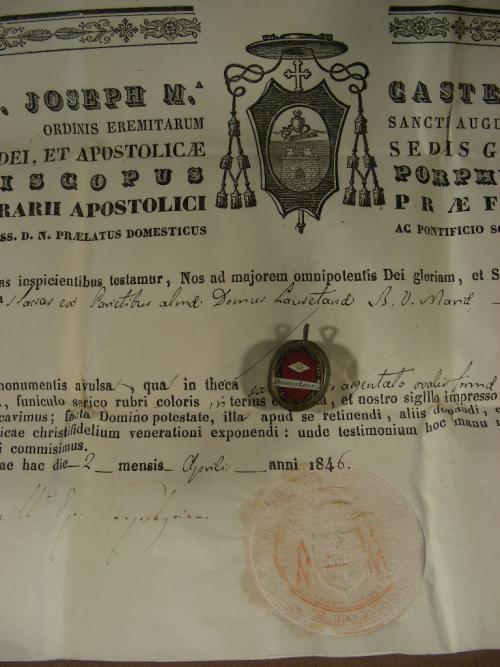 . JOSEPH M.ª CASTE
ORDINIS EREMITARUM SANCTI AUGU
DEI, ET APOSTOLICÆ SEDIS G
ISCOPUS PORPH
RARII APOSTOLICI PRÆF
SS. D. N. PRÆLATUS DOMESTICUS AC PONTIFICIO SO
as inspicientibus testamur, Nos ad majorem omnipotentis Dei gloriam, et S
sacras ex Parietibus almæ Domus Lauretanæ B. V. Mariæ
monumentis avulsas, quas in theca argentato ovalis formæ
, funiculo serico rubri coloris, interius et nostro sigillo impresso
cavimus; facta Domino potestate, illas apud se retinendi, aliis donandi, e
icae christifidelium venerationi exponendi: unde testimonium hoc manu n
i commisimus.
ae hac die 2 mensis Aprilis anni 1846.
Domus Laur